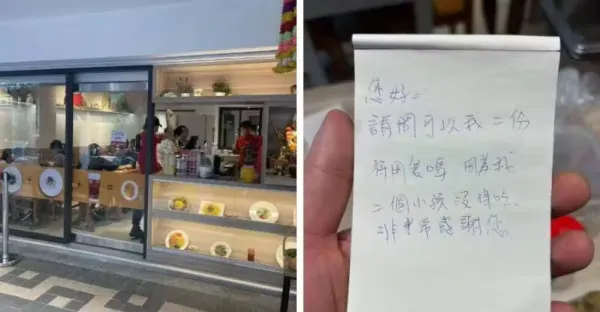 您好=
請問可以我二份
待用餐嗎 因為我
二個小孩沒得吃、
非常感謝您